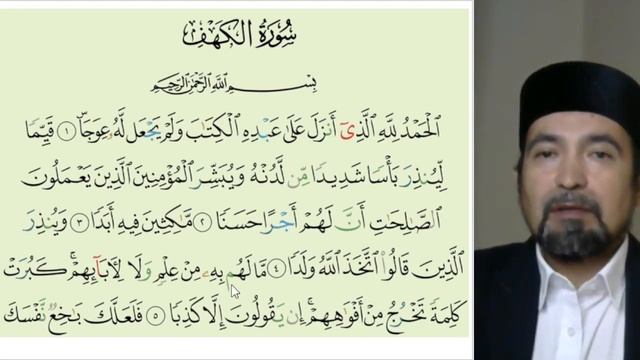 سُورَةُ الْكَهْفِ
بِسْمِ اللَّهِ الرَّحْمَٰنِ الرَّحِيمِ
الْحَمْدُ لِلَّهِ الَّذِي أَنزَلَ عَلَىٰ عَبْدِهِ الْكِتَابَ وَلَمْ يَجْعَل لَّهُ عِوَجًا ۜ ۝١ قَيِّمًا
لِّيُنذِرَ بَأْسًا شَدِيدًا مِّن لَّدُنْهُ وَيُبَشِّرَ الْمُؤْمِنِينَ الَّذِينَ يَعْمَلُونَ
الصَّالِحَاتِ أَنَّ لَهُمْ أَجْرًا حَسَنًا ۝٢ مَّاكِثِينَ فِيهِ أَبَدًا ۝٣ وَيُنذِرَ
الَّذِينَ قَالُوا اتَّخَذَ اللَّهُ وَلَدًا ۝٤ مَّا لَهُم بِهِ مِنْ عِلْمٍ وَلَا لِآبَائِهِمْ ۚ كَبُرَتْ
كَلِمَةً تَخْرُجُ مِنْ أَفْوَاهِهِمْ ۚ إِن يَقُولُونَ إِلَّا كَذِبًا ۝٥ فَلَعَلَّكَ بَاخِعٌ نَّفْسَكَ